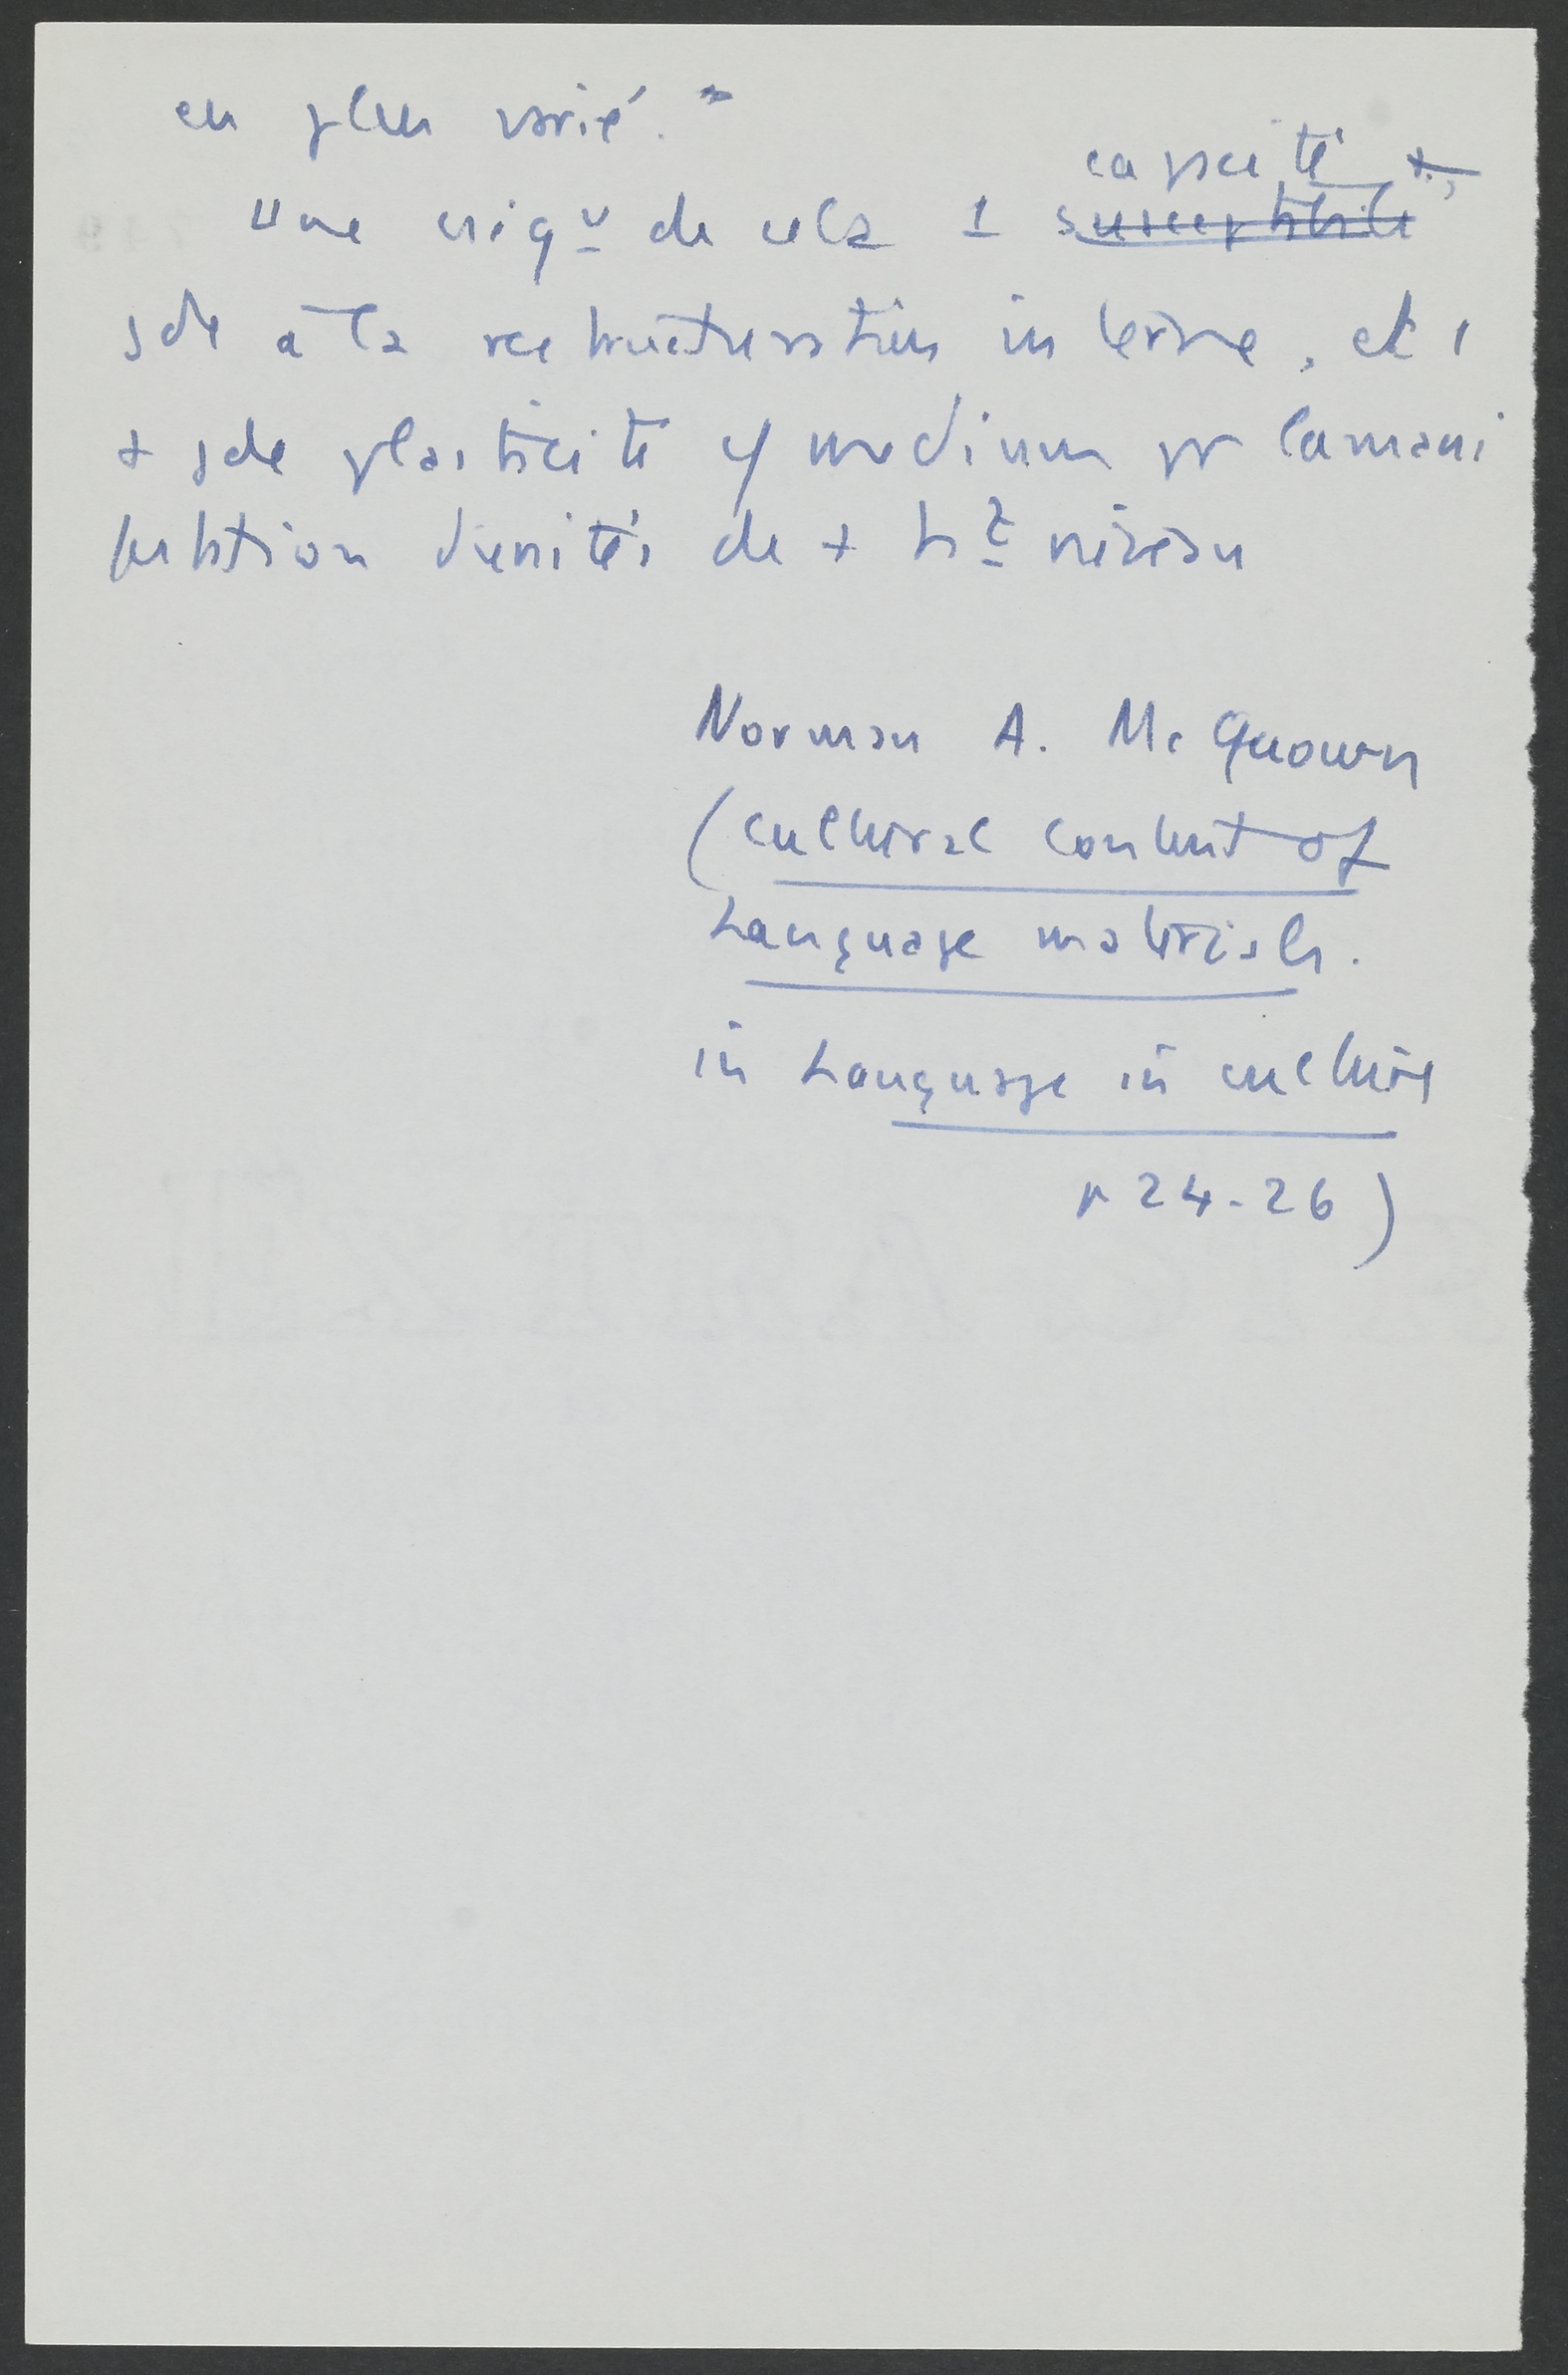 en plus varié."
Une csiqu de cela 1 capacité +
susceptibilité
gde à la restructuration interne, et 1
+ gde plasticité c/ medium pr la mani
pulation d'unités de + ht niveau
Norman A. McQuown
(Cultural content of
Language materials.
in Language in culture
p 24-26)